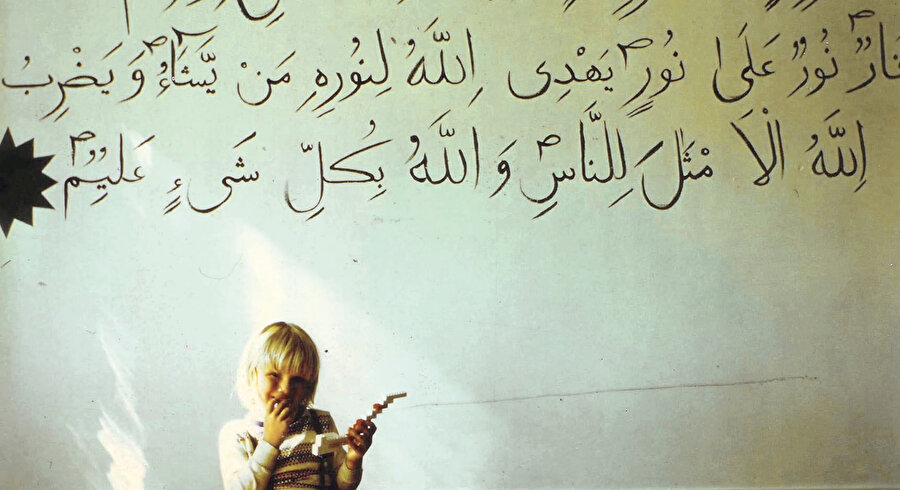 نَارٌ ؕ نُورٌ عَلَىٰ نُورٍ ؕ يَهْدِى اللَّهُ لِنُورِهِ مَنْ يَّشَآءُ ؕ وَيَضْرِبُ
اللَّهُ الْاَ مْثَٰلَ لِلنَّاسِ ؕ وَاللَّهُ بِكُلِّ شَىءٍ عَلِيمٌ ؕ